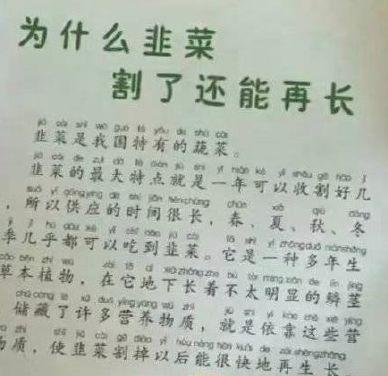 为什么韭菜
割了还能再长
jiǔ cài shì wǒ guó tè yǒu de shū cài
韭菜是我国特有的蔬菜。
jiǔ cài de zuì dà tè diǎn jiù shì yì nián kě yǐ shōu gē hǎo jǐ
韭菜的最大特点就是一年可以收割好几
suǒ yǐ gōng yìng de shí jiān hěn cháng chūn xià qiū dōng
，所以供应的时间很长，春、夏、秋、冬
jì jī hū dōu kě yǐ chī dào jiǔ cài tā shì yì zhǒng duō nián shēng
季几乎都可以吃到韭菜。它是一种多年生
cǎo běn zhí wù zài tā dì xià zhǎng zhe bú tài míng xiǎn de lín jīng
草本植物，在它地下长着不太明显的鳞茎
chǔ cáng le xǔ duō yíng yǎng wù zhì jiù shì yī kào zhè xiē yíng
储藏了许多营养物质，就是依靠这些营
wù zhì shǐ jiǔ cài gē diào yǐ hòu néng hěn kuài de zài shēng zhǎng
物质，使韭菜割掉以后能很快地再生长